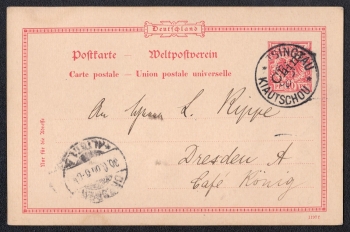 Deutschland
Postkarte — Weltpostverein
Carte postale — Union postale universelle
TSINGTAU
KIAUTSCHOU
An Herrn L. Kippe
Dresden A
Café König
Nur für die Adresse